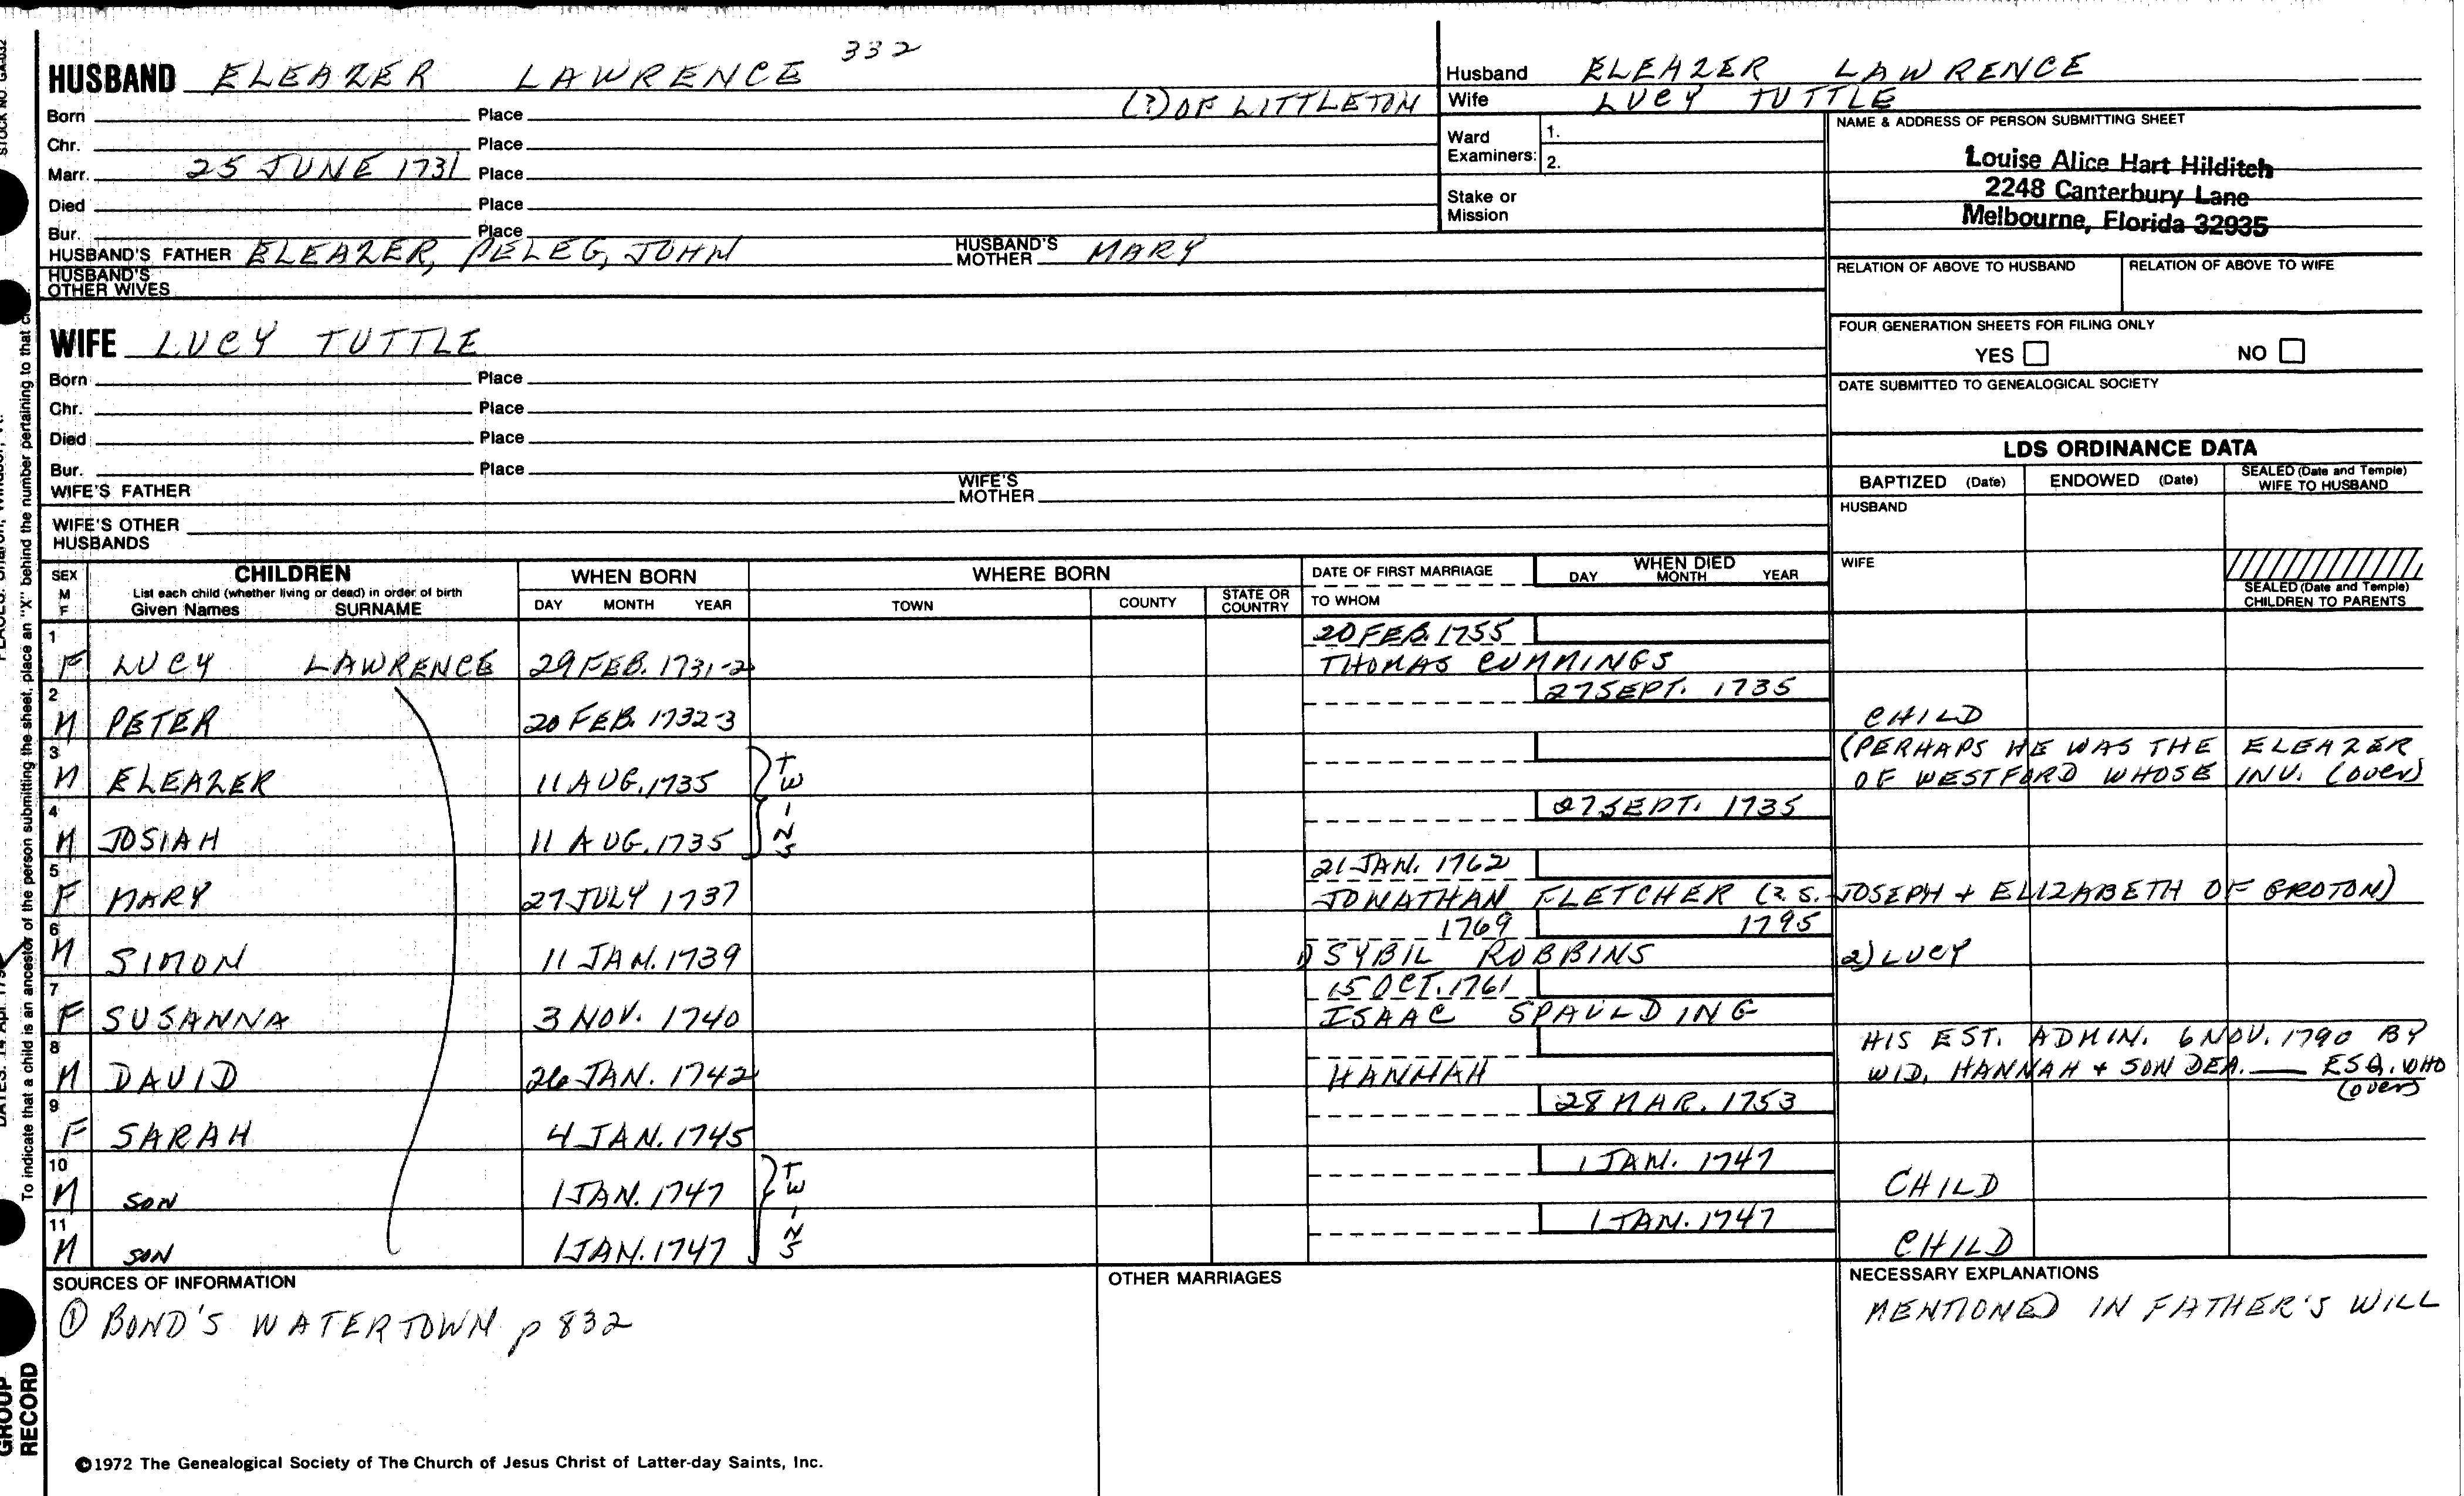 332
HUSBAND ELEAZER LAWRENCE
(?) OF LITTLETON
Born Place
Chr. Place
Marr. 25 JUNE 1731 Place
Died Place
Bur. Place
HUSBAND'S FATHER ELEAZER, PELEG, JOHN HUSBAND'S MOTHER MARY
HUSBAND'S OTHER WIVES
Husband ELEAZER LAWRENCE
Wife LUCY TUTTLE
Ward Examiners: 1.
2.
Stake or Mission
NAME & ADDRESS OF PERSON SUBMITTING SHEET
Louise Alice Hart Hilditch
2248 Canterbury Lane
Melbourne, Florida 32935
RELATION OF ABOVE TO HUSBAND RELATION OF ABOVE TO WIFE
FOUR GENERATION SHEETS FOR FILING ONLY
YES NO
DATE SUBMITTED TO GENEALOGICAL SOCIETY
WIFE LUCY TUTTLE
Born Place
Chr. Place
Died Place
Bur. Place
WIFE'S FATHER WIFE'S MOTHER
WIFE'S OTHER HUSBANDS
LDS ORDINANCE DATA
BAPTIZED (Date) ENDOWED (Date) SEALED (Date and Temple) WIFE TO HUSBAND
HUSBAND
WIFE
SEALED (Date and Temple) CHILDREN TO PARENTS
SEX M F
CHILDREN
List each child (whether living or dead) in order of birth
Given Names SURNAME
WHEN BORN
DAY MONTH YEAR
WHERE BORN
TOWN COUNTY STATE OR COUNTRY
DATE OF FIRST MARRIAGE
TO WHOM
WHEN DIED
DAY MONTH YEAR
1 20 FEB. 1755
F LUCY LAWRENCE 29 FEB. 1731-2 THOMAS CUMMINGS
2 27 SEPT. 1735
M PETER 20 FEB. 1732-3 CHILD
3 (PERHAPS HE WAS THE ELEAZER
M ELEAZER 11 AUG. 1735 TWINS OF WESTFORD WHOSE INV. (over)
4 27 SEPT. 1735
M JOSIAH 11 AUG. 1735
5 21 JAN. 1762
F MARY 27 JULY 1737 JONATHAN FLETCHER (?. S. JOSEPH + ELIZABETH OF GROTON)
6 1769 1795
M SIMON 11 JAN. 1739 1) SYBIL ROBBINS 2) LUCY
7 15 OCT. 1761
F SUSANNA 3 NOV. 1740 ISAAC SPAULDING
8 HIS EST. ADMIN. 6 NOV. 1790 BY
M DAVID 26 JAN. 1742 HANNAH WID. HANNAH + SON DEA. ___ ESQ. WHO
(over)
9 28 MAR. 1753
F SARAH 4 JAN. 1745
10 1 JAN. 1747
M SON 1 JAN. 1747 TWINS CHILD
11 1 JAN. 1747
M SON 1 JAN. 1747 CHILD
SOURCES OF INFORMATION
① BOND'S WATERTOWN p 832
OTHER MARRIAGES
NECESSARY EXPLANATIONS
MENTIONED IN FATHER'S WILL
©1972 The Genealogical Society of The Church of Jesus Christ of Latter-day Saints, Inc.
To indicate that a child is an ancestor of the person submitting the sheet, place an "X" behind the number pertaining to that
GROUP
RECORD